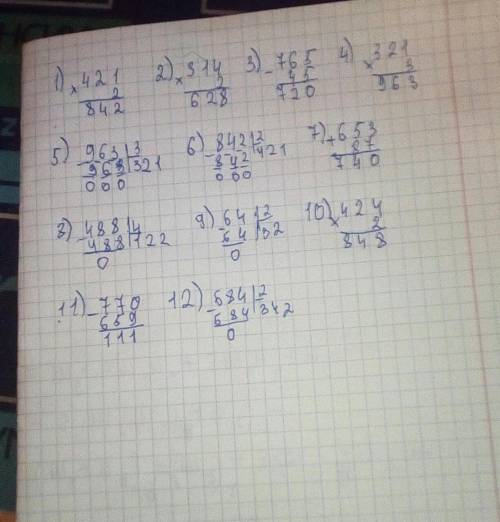 1) 421 2) 314 3) 765 4) 321
× 2 × 2 - 45 × 3
842 628 720 963
5) 963 3 6) 842 2 7) 653
- 963 321 - 842 421 + 87
000 000 740
8) 488 4 9) 64 2 10) 424
- 488 122 - 64 32 × 2
0 0 848
11) 770 12) 684 2
- 659 - 684 342
111 0